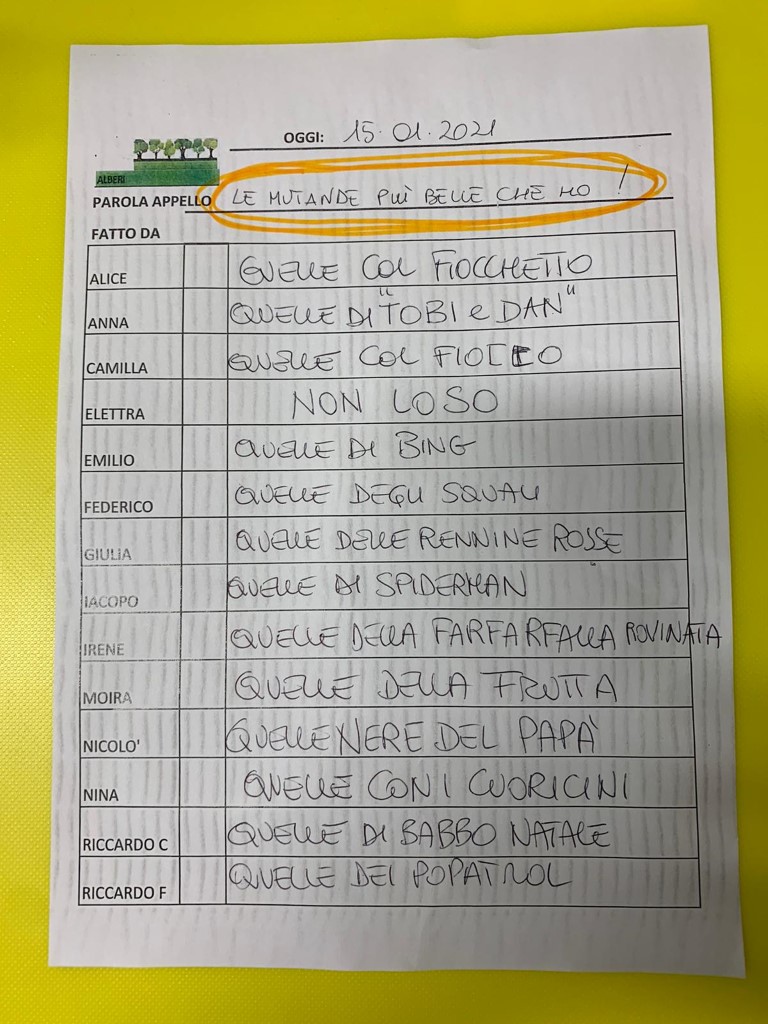 OGGI: 15.01.2021
ALBERI
PAROLA APPELLO LE MUTANDE PIÙ BELLE CHE HO!
FATTO DA
ALICE QUELLE COL FIOCCHETTO
ANNA QUELLE DI "TOBI e DAN"
CAMILLA QUELLE COL FIOCCO
ELETTRA NON LO SO
EMILIO QUELLE DI BING
FEDERICO QUELLE DEGLI SQUALI
GIULIA QUELLE DELLE RENNINE ROSSE
IACOPO QUELLE DI SPIDERMAN
IRENE QUELLE DELLA FARFARFALLA ROVINATA
MOIRA QUELLE DELLA FRUTTA
NICOLO' QUELLE NERE DEL PAPÀ
NINA QUELLE CON I CUORICINI
RICCARDO C QUELLE DI BABBO NATALE
RICCARDO F QUELLE DEI POPATROL